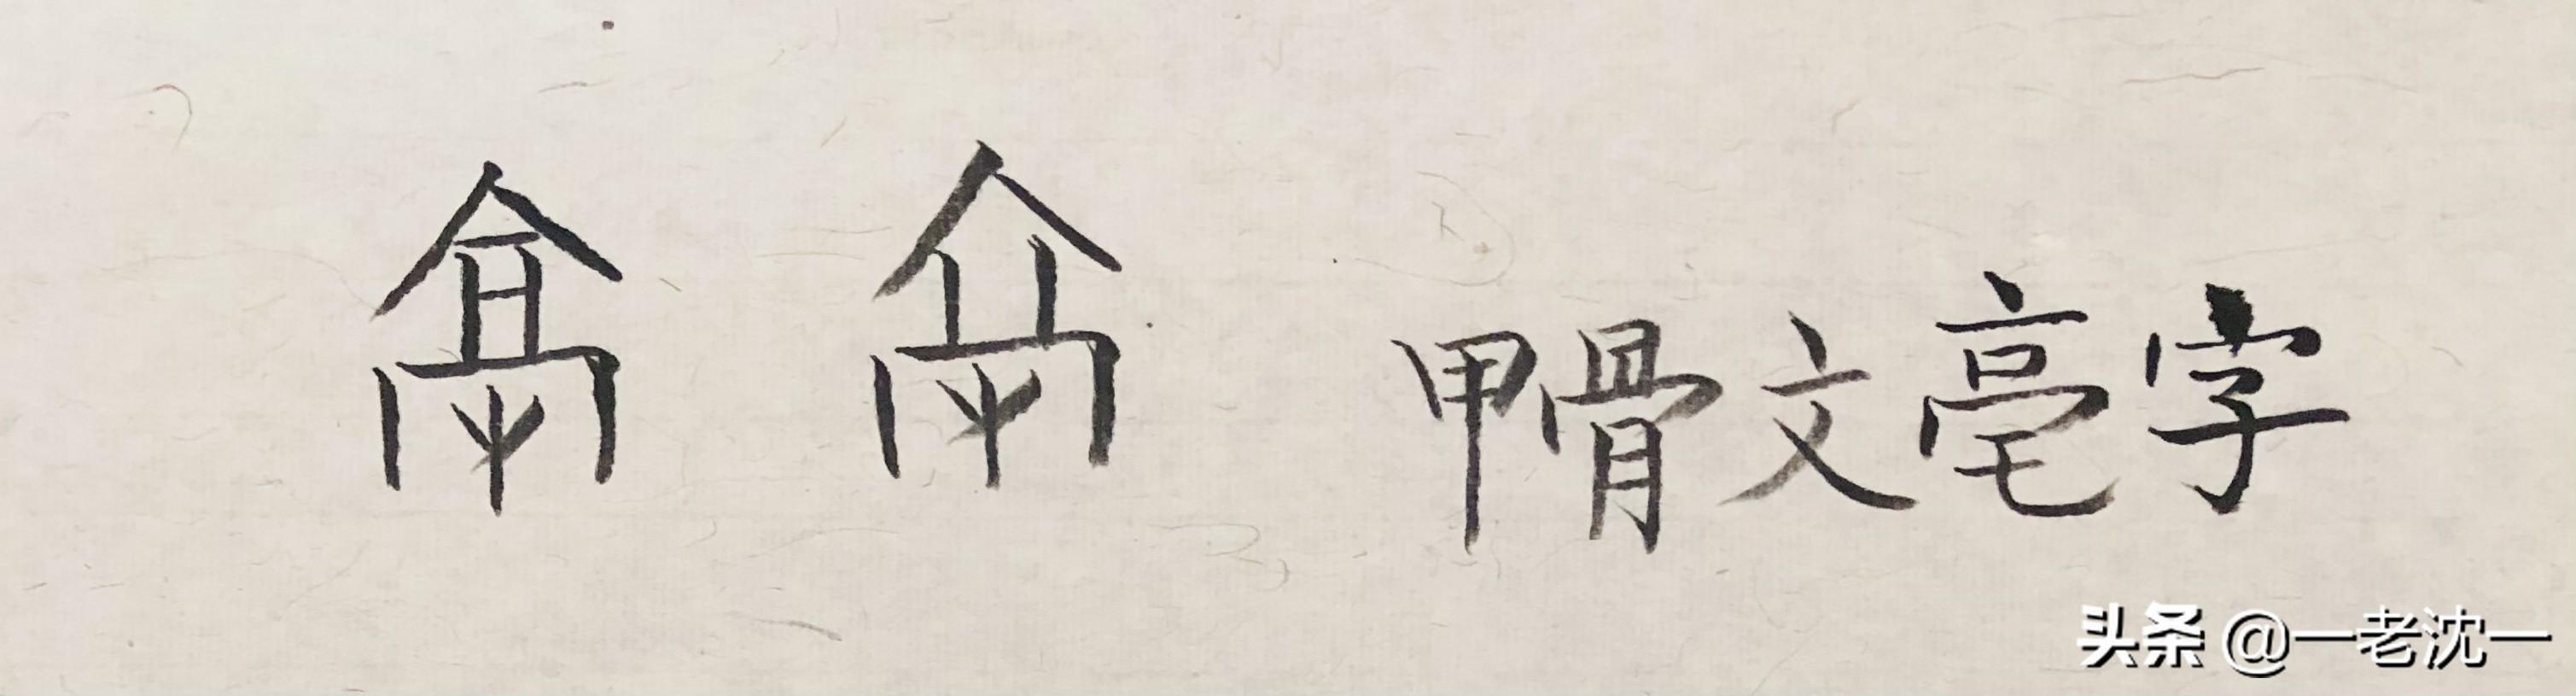 亳 亳 甲骨文亳字
头条 @一老沈一